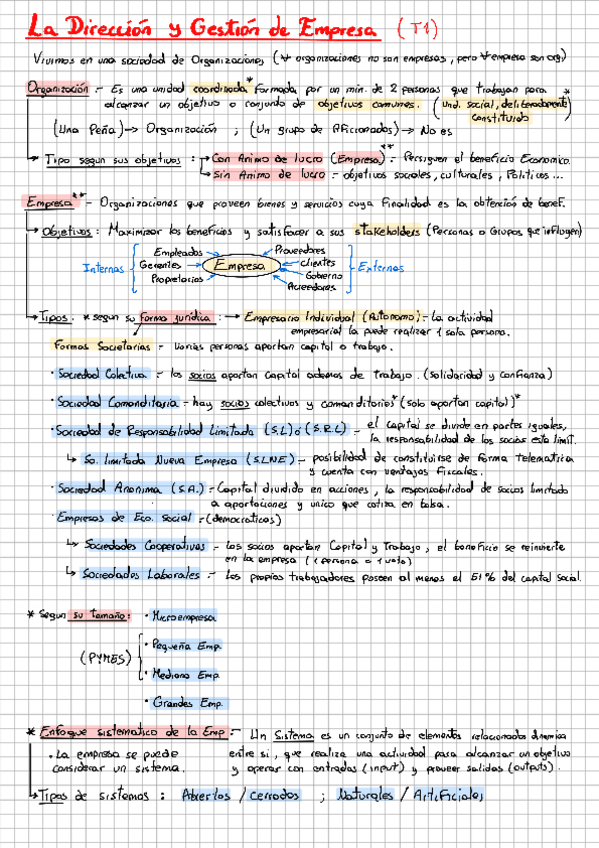 La Dirección y Gestión de Empresa (T1)
Vivimos en una sociedad de Organizaciones (∀ organizaciones no son empresas, pero ∀ empresa son org)
Organización :- Es una unidad coordinada* formada por un min. de 2 personas que trabajan para
alcanzar un objetivo o conjunto de objetivos comunes. (* und. social, deliberadamente constituida)
(Una Peña) → Organización ; (Un grupo de Aficionados) → No es
Tipo segun sus objetivos : → Con Animo de lucro (Empresa)** :- Persiguen el beneficio Economico.
→ Sin Animo de lucro :- objetivos sociales, culturales, Politicos...
Empresa** :- Organizaciones que proveen bienes y servicios cuya finalidad es la obtención de benef.
→ Objetivos : Maximizar los beneficios y satisfacer a sus stakeholders (Personas o Grupos que influyen)
Internas { Empleados Gerentes Propietarios → Empresa ← Proveedores clientes Gobierno Acreedores } Externas
→ Tipos : * segun su forma juridica : → Empresario Individual (Autonomo) :- La actividad
empresarial la puede realizar 1 sola persona.
Formas Societarias :- Varias personas aportan capital o trabajo.
· Sociedad Colectiva :- los socios aportan Capital ademas de trabajo. (Solidaridad y confianza)
· Sociedad Comanditaria :- hay socios colectivos y comanditarios* (solo aportan capital)*
· Sociedad de Responsabilidad Limitada (S.L) ó (S.R.L) :- el capital se divide en partes iguales,
la responsabilidad de los socios esta limit.
↳ So. limitada Nueva Empresa (S.L.N.E) :- posibilidad de constituirse de forma telematica
y cuenta con ventajas fiscales.
· Sociedad Anonima (S.A.) :- Capital dividido en acciones, la responsabilidad de socios limitada
a aportaciones y unico que cotiza en bolsa.
· Empresas de Eco. Social :- (democraticas)
↳ Sociedades Cooperativas :- Los socios aportan Capital y Trabajo, el beneficio se reinvierte
en la empresa (1 persona = 1 voto)
↳ Sociedades Laborales :- Los propios trabajadores poseen al menos el 51% del capital social.
* Segun su tamaño: · Microempresa
(PYMES) · Pequeña Emp.
· Mediana Emp.
· Grandes Emp.
* Enfoque sistematico de la Emp :- Un Sistema es un conjunto de elementos relacionados dinamica
· La empresa se puede considerar un sistema.
entre si, que realiza una actividad para alcanzar un objetivo
y operar con entradas (input) y proveer salidas (outputs).
↳ Tipos de sistemas : Abiertos / Cerrados ; Naturales / Artificiales